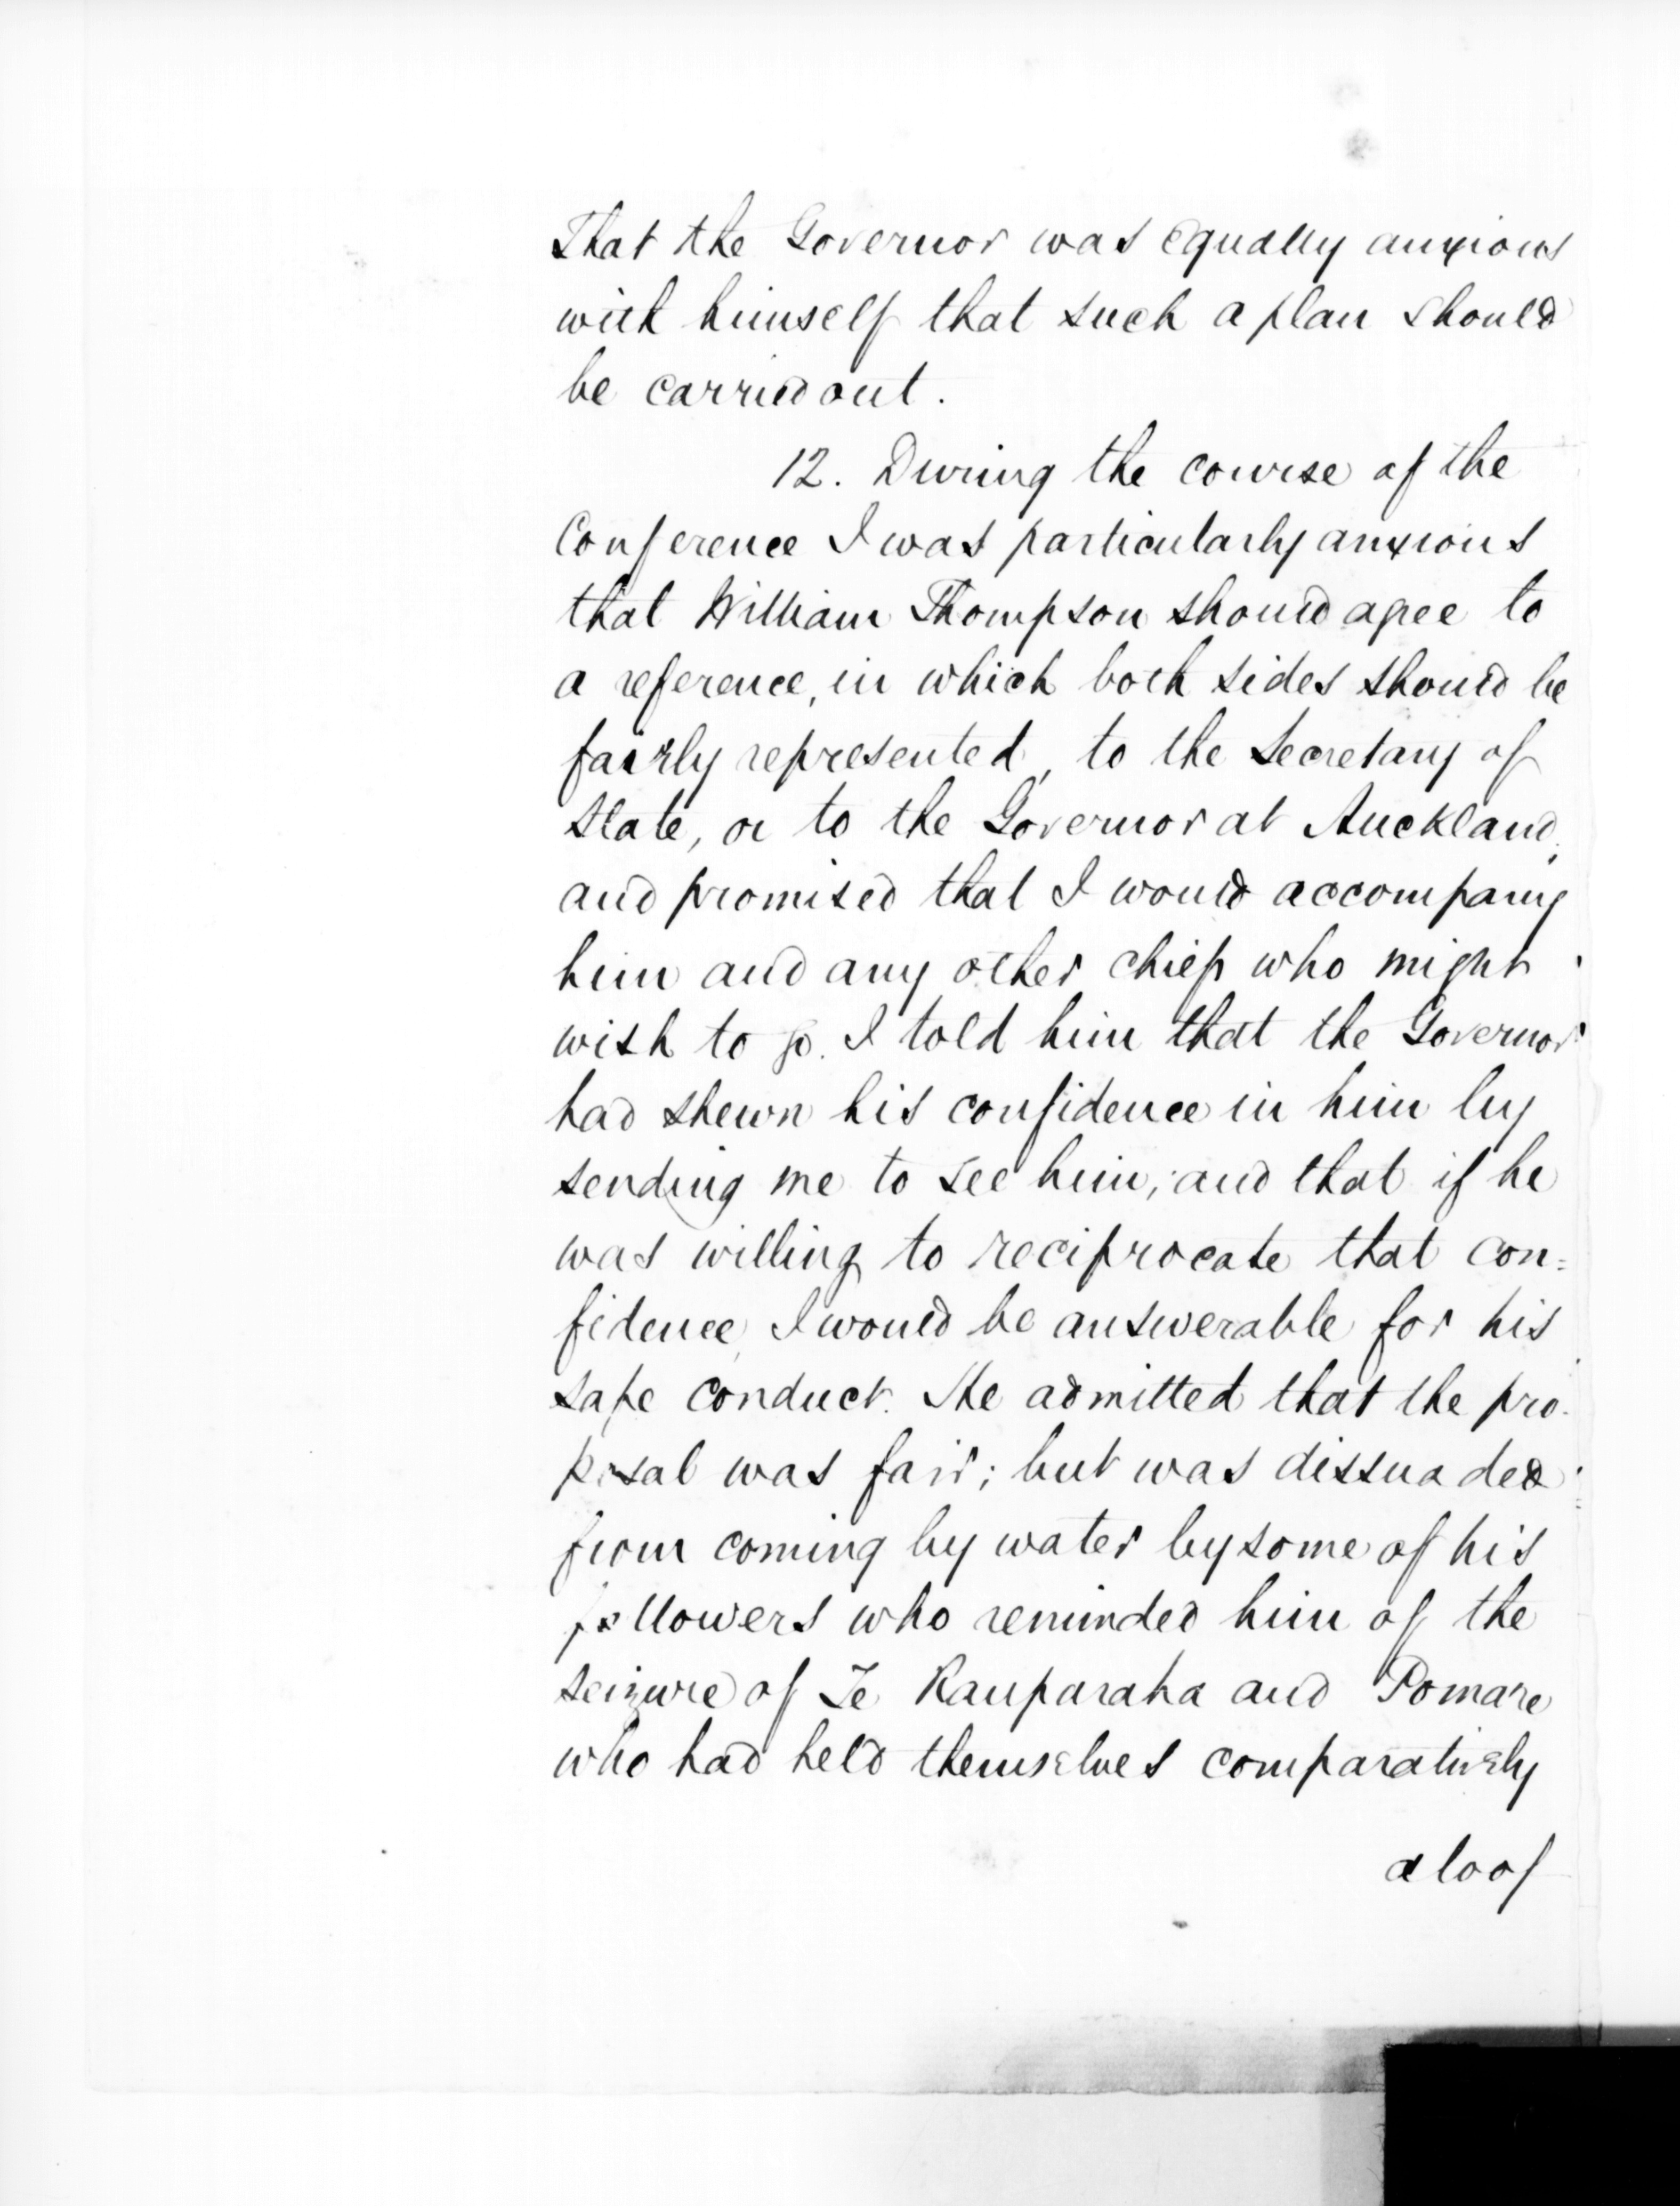 That the Governor was equally anxious
with himself that such a plan should
be carried out.
12. During the course of the
Conference I was particularly anxious
that William Thompson should agree to
a reference, in which both sides should be
fairly represented, to the Secretary of
State, or to the Governor at Auckland,
and promised that I would accompany
him and any other chief who might
wish to go. I told him that the Governor
had shewn his confidence in him by
sending me to see him; and that if he
was willing to reciprocate that con=
fidence, I would be answerable for his
safe conduct. He admitted that the pro-
posal was fair; but was dissuaded
from coming by water by some of his
followers who reminded him of the
seizure of Te Rauparaha and Pomare
who had held themselves comparatively
aloof